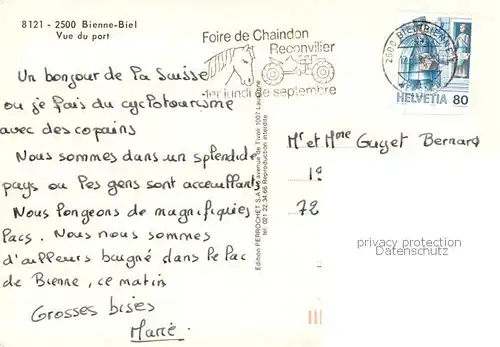 8121 - 2500 Bienne-Biel
Vue du port
Foire de Chaindon
Reconvilier
1er lundi de septembre
2500 BIEL/BIENNE 1
HELVETIA 80
Un bonjour de la Suisse
ou je fais du cyclotourisme
avec des copains
Nous sommes dans un splendide
pays ou les gens sont acceuillants
Nous longeons de magnifiques
lacs. Nous nous sommes
d'ailleurs baigné dans le lac
de Bienne, ce matin
Grosses bises
Marie
Edition PERROCHET S.A. avenue de Tivoli 1007 Lausanne
tél. 021 22.34.66 Reproduction interdite
Mr et Mme Guyet Bernard
19
72
privacy protection
Datenschutz